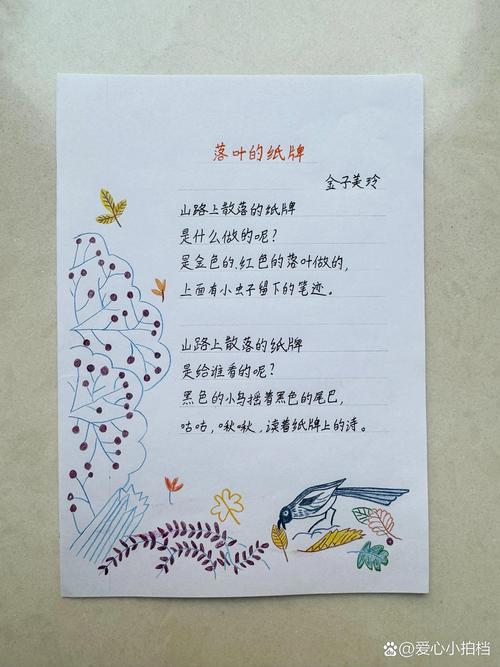 落叶的纸牌
金子美玲
山路上散落的纸牌
是什么做的呢？
是金色的、红色的落叶做的，
上面有小虫子留下的笔迹。
山路上散落的纸牌
是给谁看的呢？
黑色的小鸟摇着黑色的尾巴，
咕咕，啾啾，读着纸牌上的诗。
@爱心小拍档